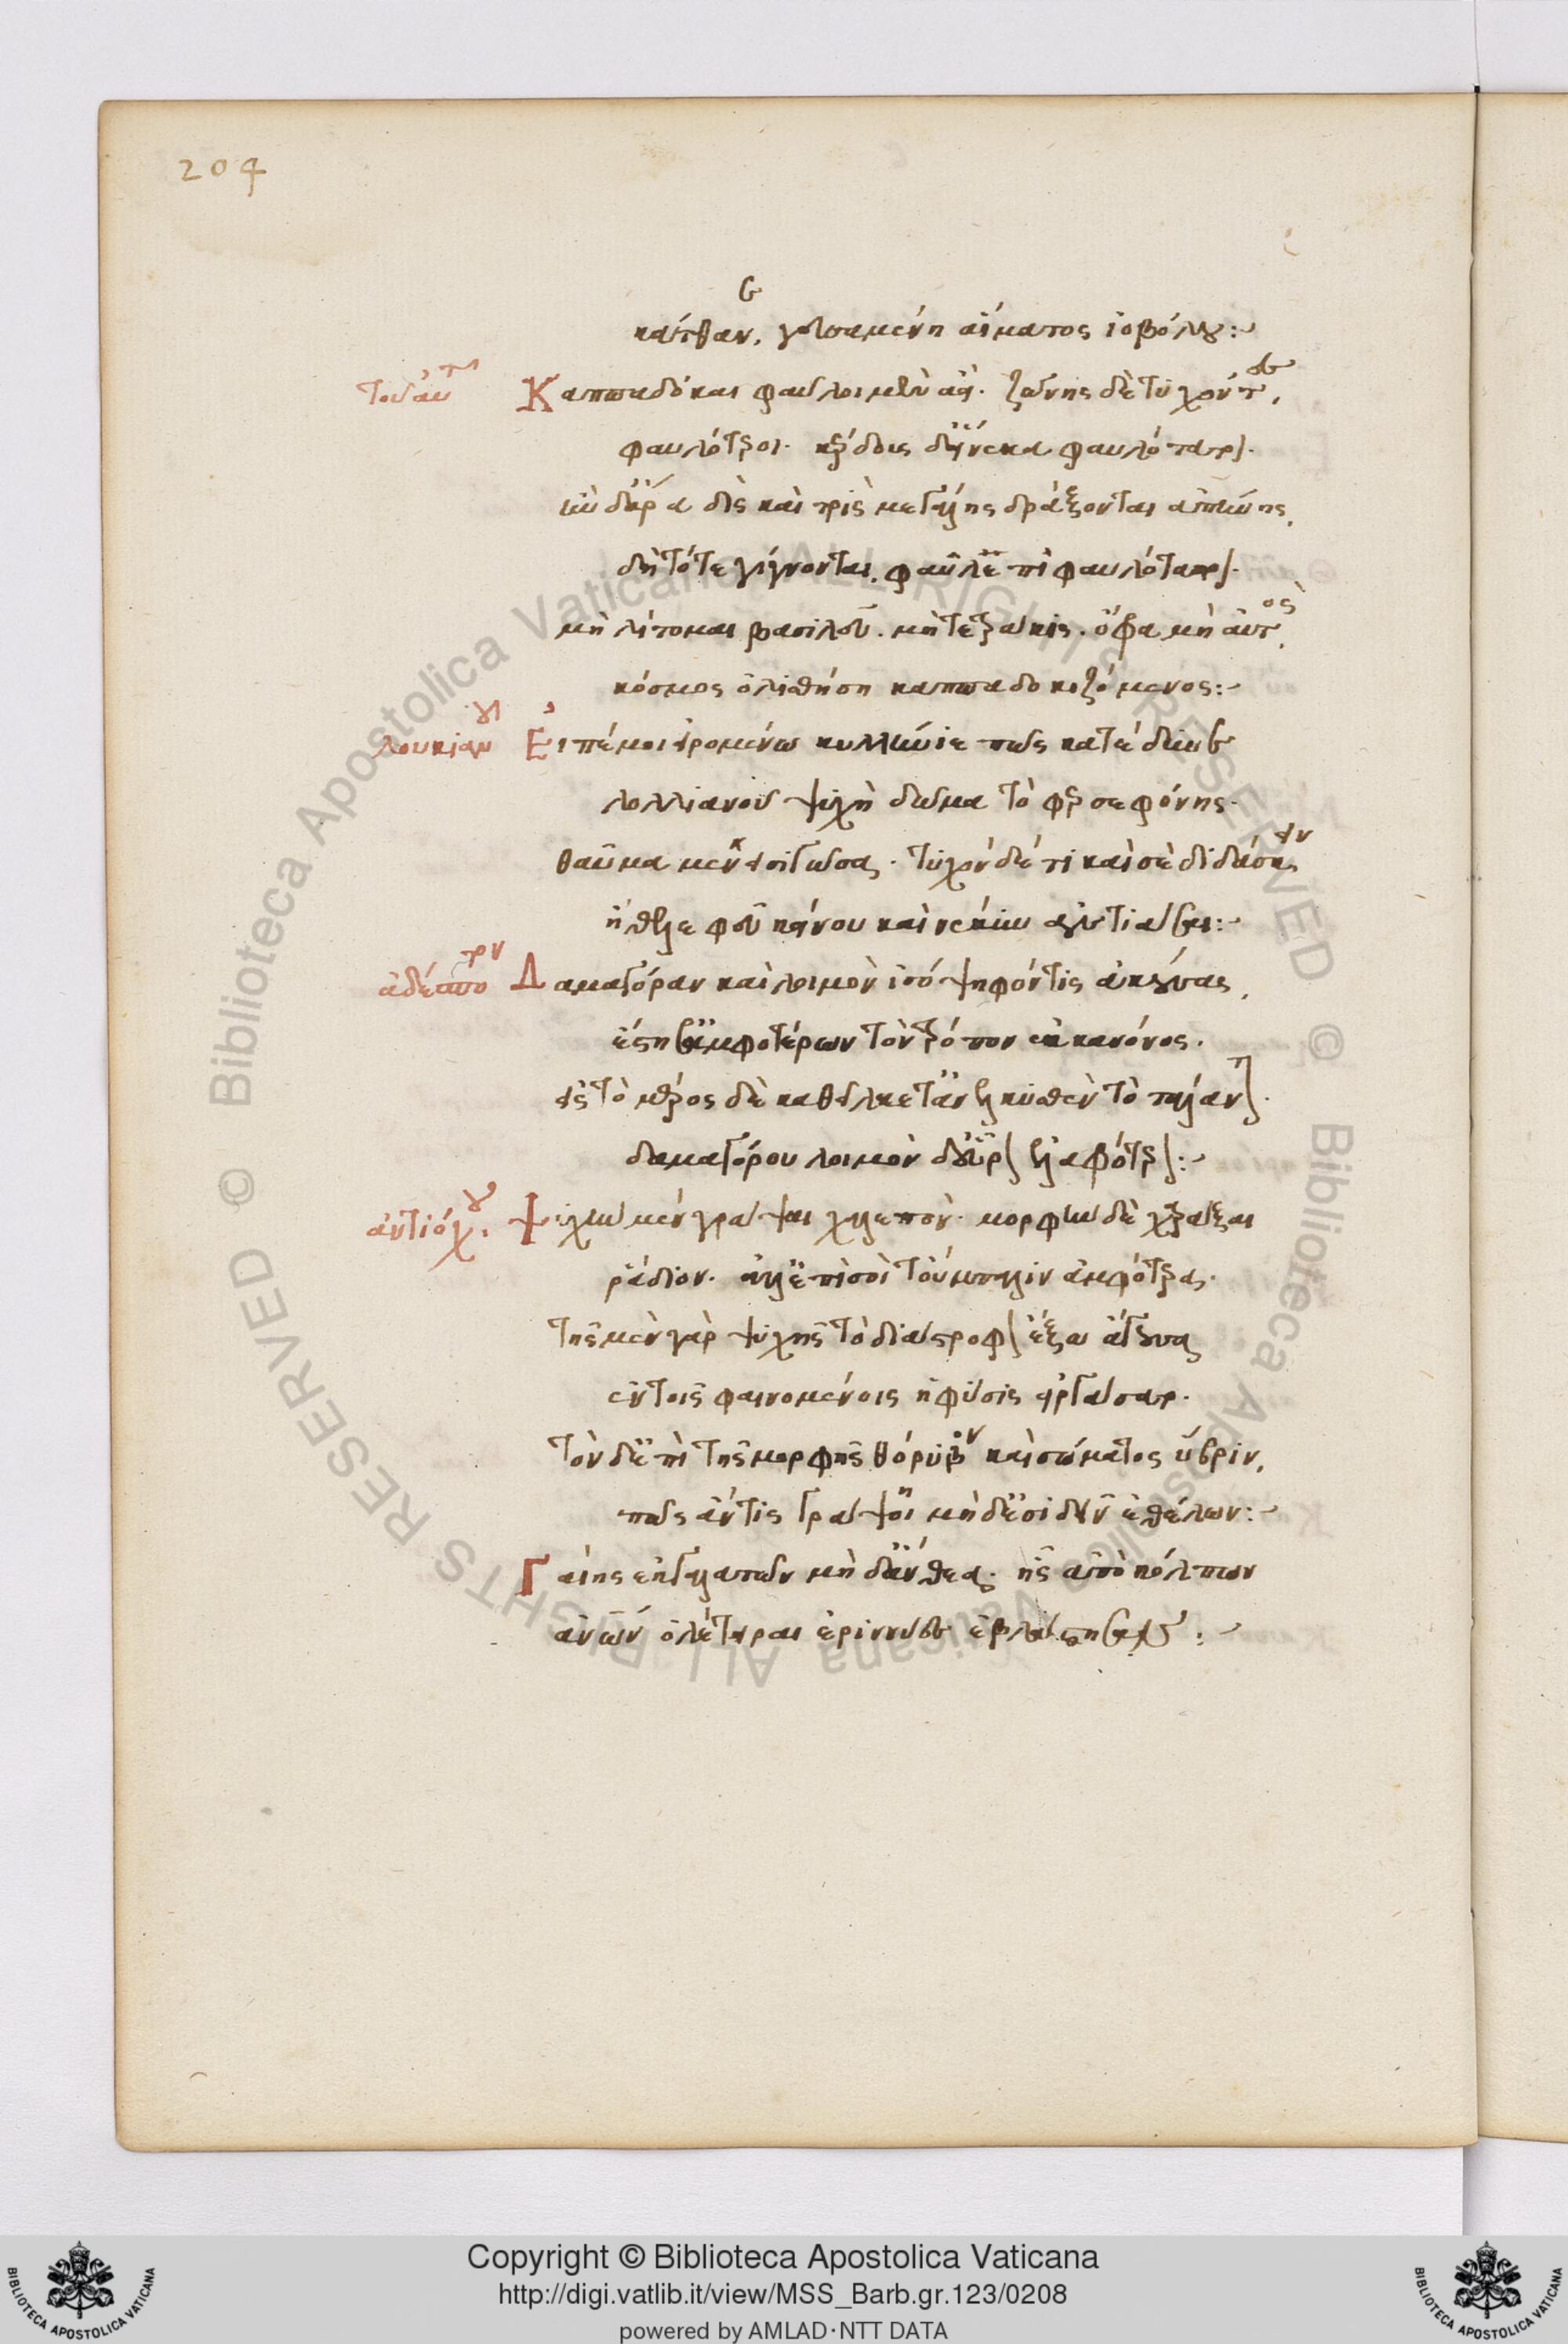 204
κάτθαν, γευσαμένη αἵματος ἰοβόλου:~
τοῦ αὐτοῦ Καππαδόκαι φαῦλοι μὲν ἀεί· ζώνης δὲ τυχόντες,
φαυλότεροι· κέρδους δ' εἵνεκα φαυλότατοι·
ἢν δ' ἄρα δὶς καὶ τρὶς μεγάλης δράξονται ἀπήνης,
δὴ τότε γίγνονται, φαυλεπιφαυλότατοι·
μὴ λίτομαι βασιλεῦ. μὴ τετράκις. ὄφρα μὴ αὐτὸς,
κόσμος ὀλισθήσῃ καππαδοκιζόμενος:~
λουκιανοῦ Εἰπέ μοι εἰρομένῳ κυλλήνιε πῶς κατέδυνεν
λολλιανοῦ ψυχὴ δῶμα τὸ φερσεφόνης·
θαῦμα μὲν εἰ σιγῶσα· τυχὸν δέ τι καὶ σὲ διδάσκειν
ἤθελε φεῦ κείνου καὶ νέκυν ἀντιάσαι:~
ἀδέσποτον Δαμαγόραν καὶ λοιμὸν ἰσόψηφόν τις ἀκούσας,
ἔστησ' ἀμφοτέρων τὸν τρόπον ἐκ κανόνος.
εἰς τὸ μέρος δὲ καθείλκετ' ἀνελκυσθὲν τὸ τάλαντον·
δαμαγόρου λοιμὸν δ' εὗρεν ἐλαφρότερον:~
ἀντιόχου. Ψυχὴν μὲν γράψαι χαλεπὸν· μορφὴν δὲ χαράξαι
ῥάδιον· ἀλλ' ἐπὶ σοὶ τοὔμπαλιν ἀμφότερα·
τῆς μὲν γὰρ ψυχῆς τὸ διάστροφον ἔξω ἄγουσα
ἐν τοῖς φαινομένοις ἡ φύσις εἰργάσατο·
τὸν δ' ἐπὶ τῆς μορφῆς θόρυβον καὶ σώματος ὕβριν,
πῶς ἄν τις γράψοι μηδ' ἐσιδεῖν ἐθέλων:~
Copyright © Biblioteca Apostolica Vaticana
http://digi.vatlib.it/view/MSS_Barb.gr.123/0208
powered by AMLAD·NTT DATA
BIBLIOTECA APOSTOLICA VATICANA
BIBLIOTECA APOSTOLICA VATICANA
Biblioteca Apostolica Vaticana ALL RIGHTS RESERVED ©